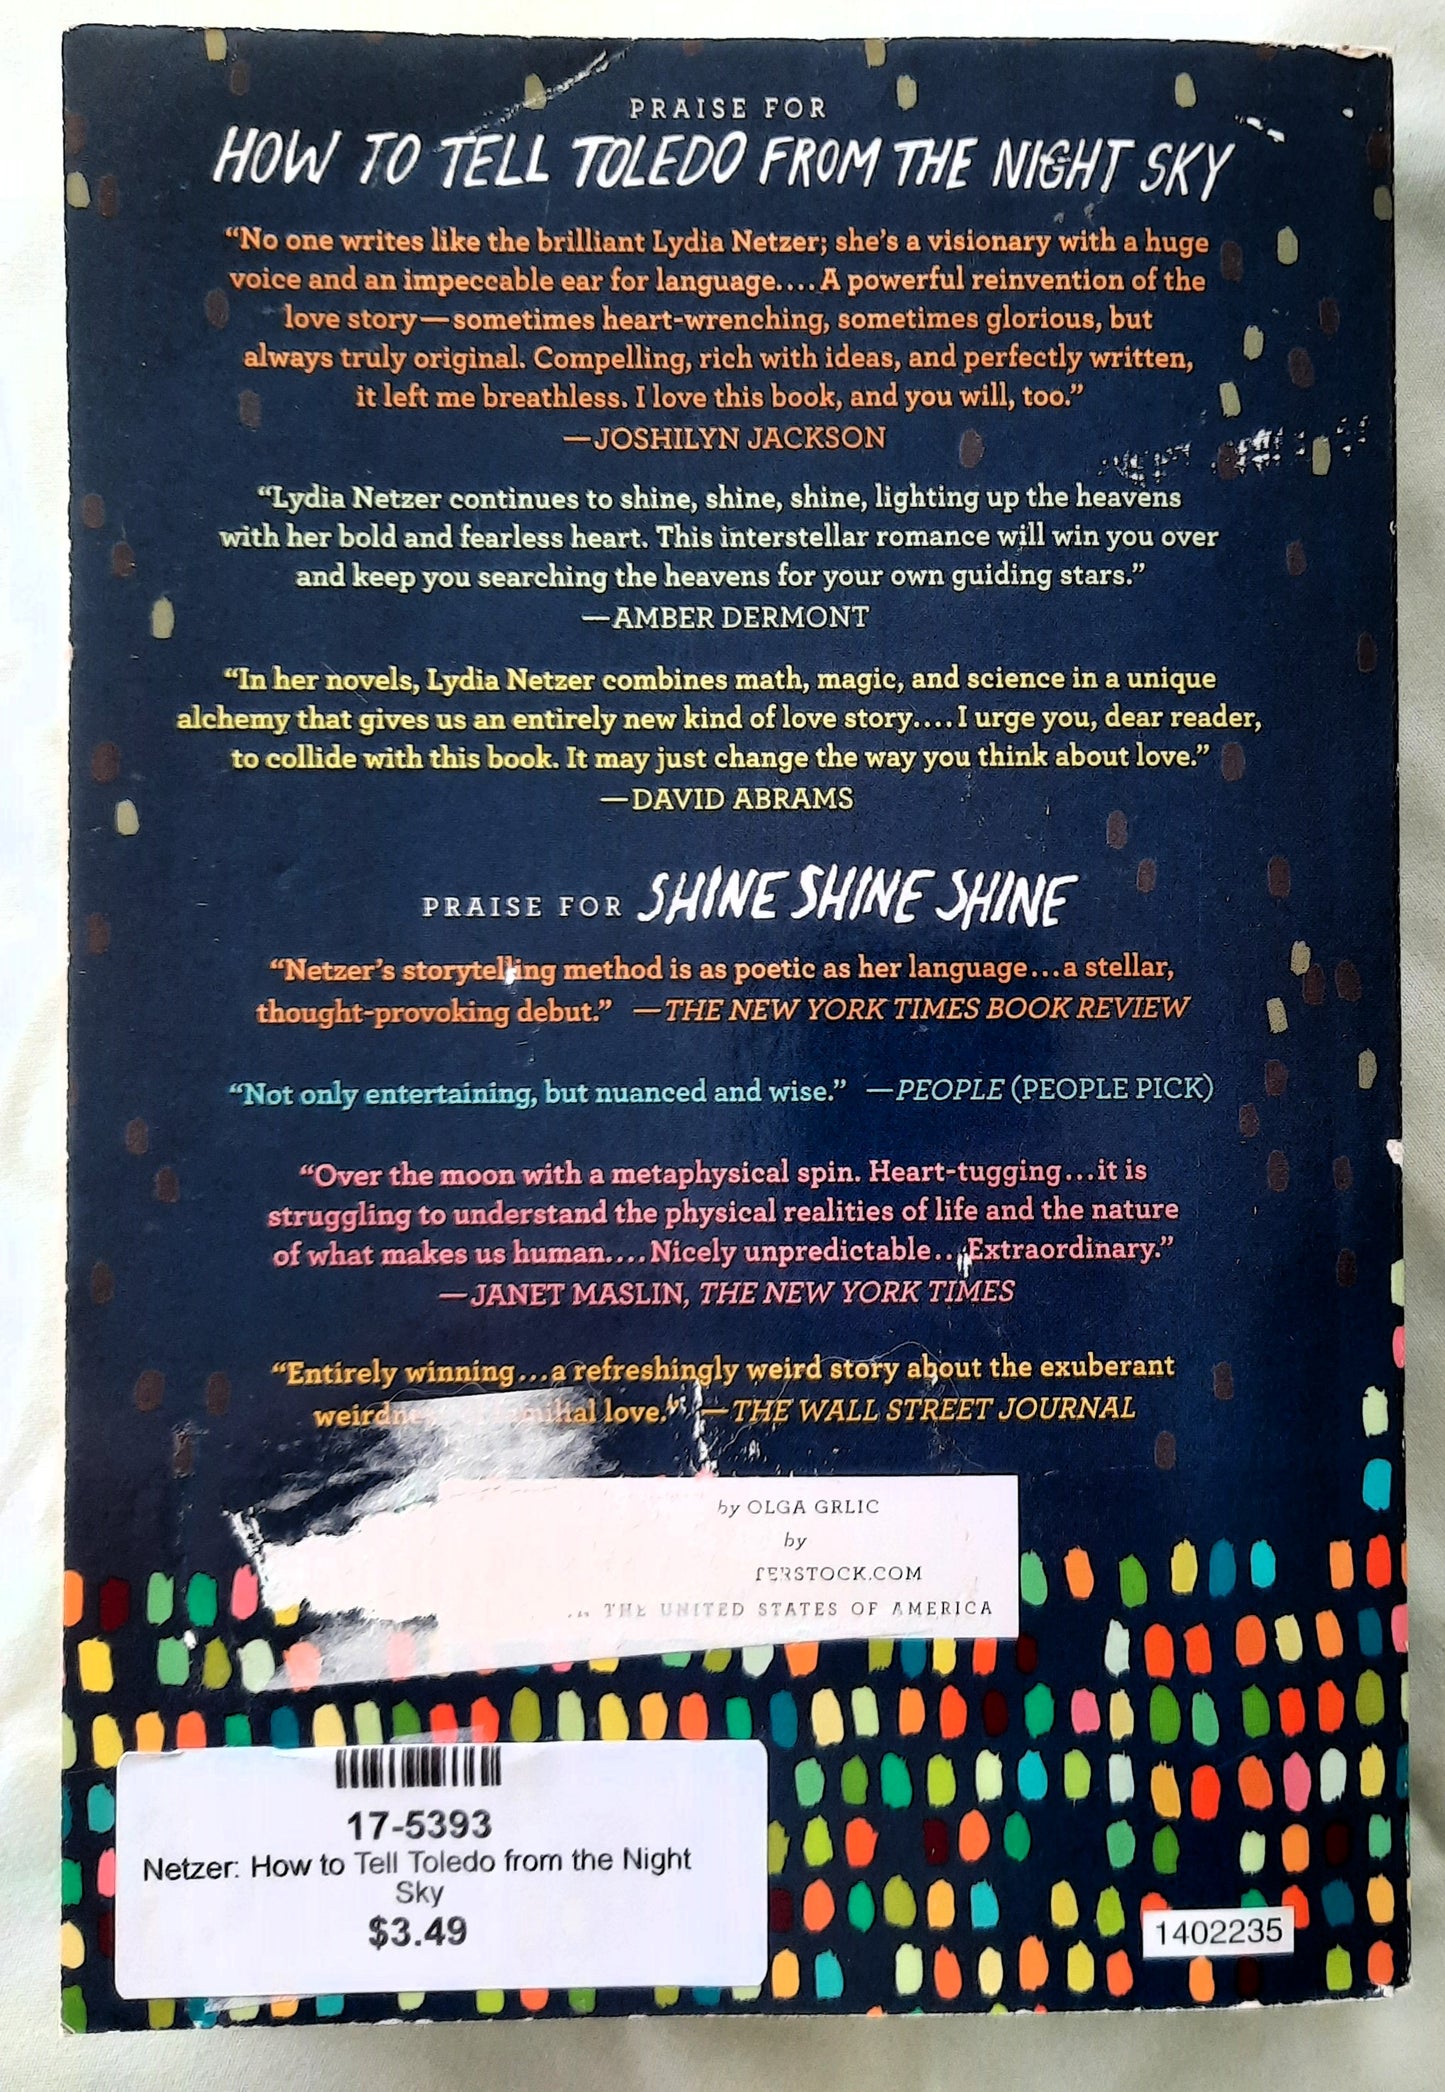 PRAISE FOR
HOW TO TELL TOLEDO FROM THE NIGHT SKY
“No one writes like the brilliant Lydia Netzer; she’s a visionary with a huge
voice and an impeccable ear for language....A powerful reinvention of the
love story—sometimes heart-wrenching, sometimes glorious, but
always truly original. Compelling, rich with ideas, and perfectly written,
it left me breathless. I love this book, and you will, too.”
—JOSHILYN JACKSON
“Lydia Netzer continues to shine, shine, shine, lighting up the heavens
with her bold and fearless heart. This interstellar romance will win you over
and keep you searching the heavens for your own guiding stars.”
—AMBER DERMONT
“In her novels, Lydia Netzer combines math, magic, and science in a unique
alchemy that gives us an entirely new kind of love story....I urge you, dear reader,
to collide with this book. It may just change the way you think about love.”
—DAVID ABRAMS
PRAISE FOR SHINE SHINE SHINE
“Netzer’s storytelling method is as poetic as her language...a stellar,
thought-provoking debut.” —THE NEW YORK TIMES BOOK REVIEW
“Not only entertaining, but nuanced and wise.” —PEOPLE (PEOPLE PICK)
“Over the moon with a metaphysical spin. Heart-tugging...it is
struggling to understand the physical realities of life and the nature
of what makes us human....Nicely unpredictable...Extraordinary.”
—JANET MASLIN, THE NEW YORK TIMES
“Entirely winning...a refreshingly weird story about the exuberant
love.” —THE WALL STREET JOURNAL
by OLGA GRLIC
by
TERSTOCK.COM
THE UNITED STATES OF AMERICA
17-5393
Netzer: How to Tell Toledo from the Night
Sky
$3.49
1402235